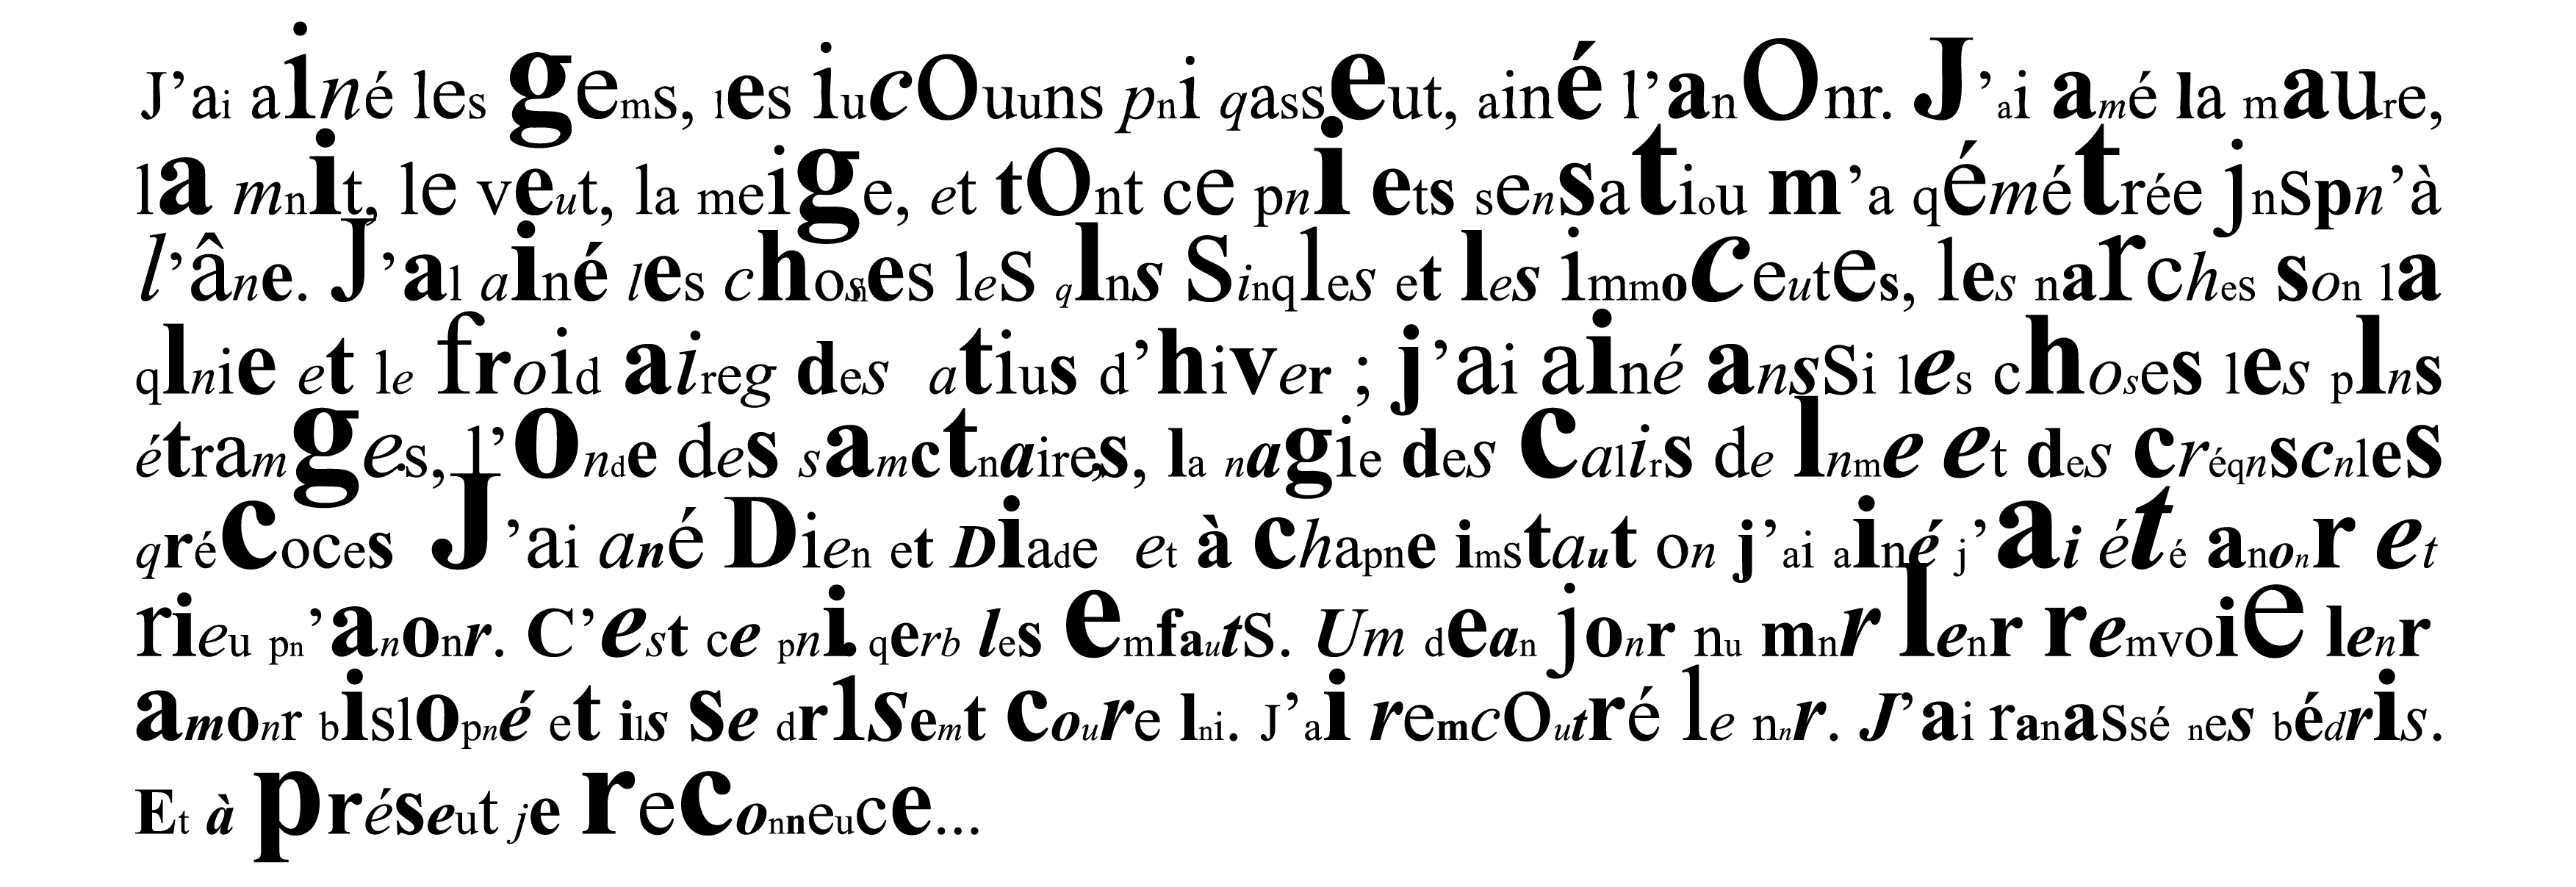 J’ai aîné les gems, les iucOuuns pni qasseut, ainé l’anOnr. J’ai amé la maure,
la mnit, le veut, la meige, et tOnt ce pni ets sensatiou m’a qémétrée jnspn’à
l’âne. J’al ainé les choses leS qlns Sinqles et les immoCeutes, les narches son la
qlnie et le froid aireg des atius d’hiver ; j’ai ainé ansSi les choses les plns
étramges, l’onde des samctnaires, la nagie des Calirs de lnme et des créqnscnles
qrécoces J’ai ané Dien et Diade et à chapne imstaut on j’ai ainé j’ai été anonr et
rieu pn’anonr. C’est ce pni qerb les emfautS. Um dean jonr nu mnr lenr remvoie lenr
amonr bislopné et ils se drlsemt coure lni. J’ai remcOutré le nnr. J’ai ranassé nes bédris.
Et à préseut je reconneuce...